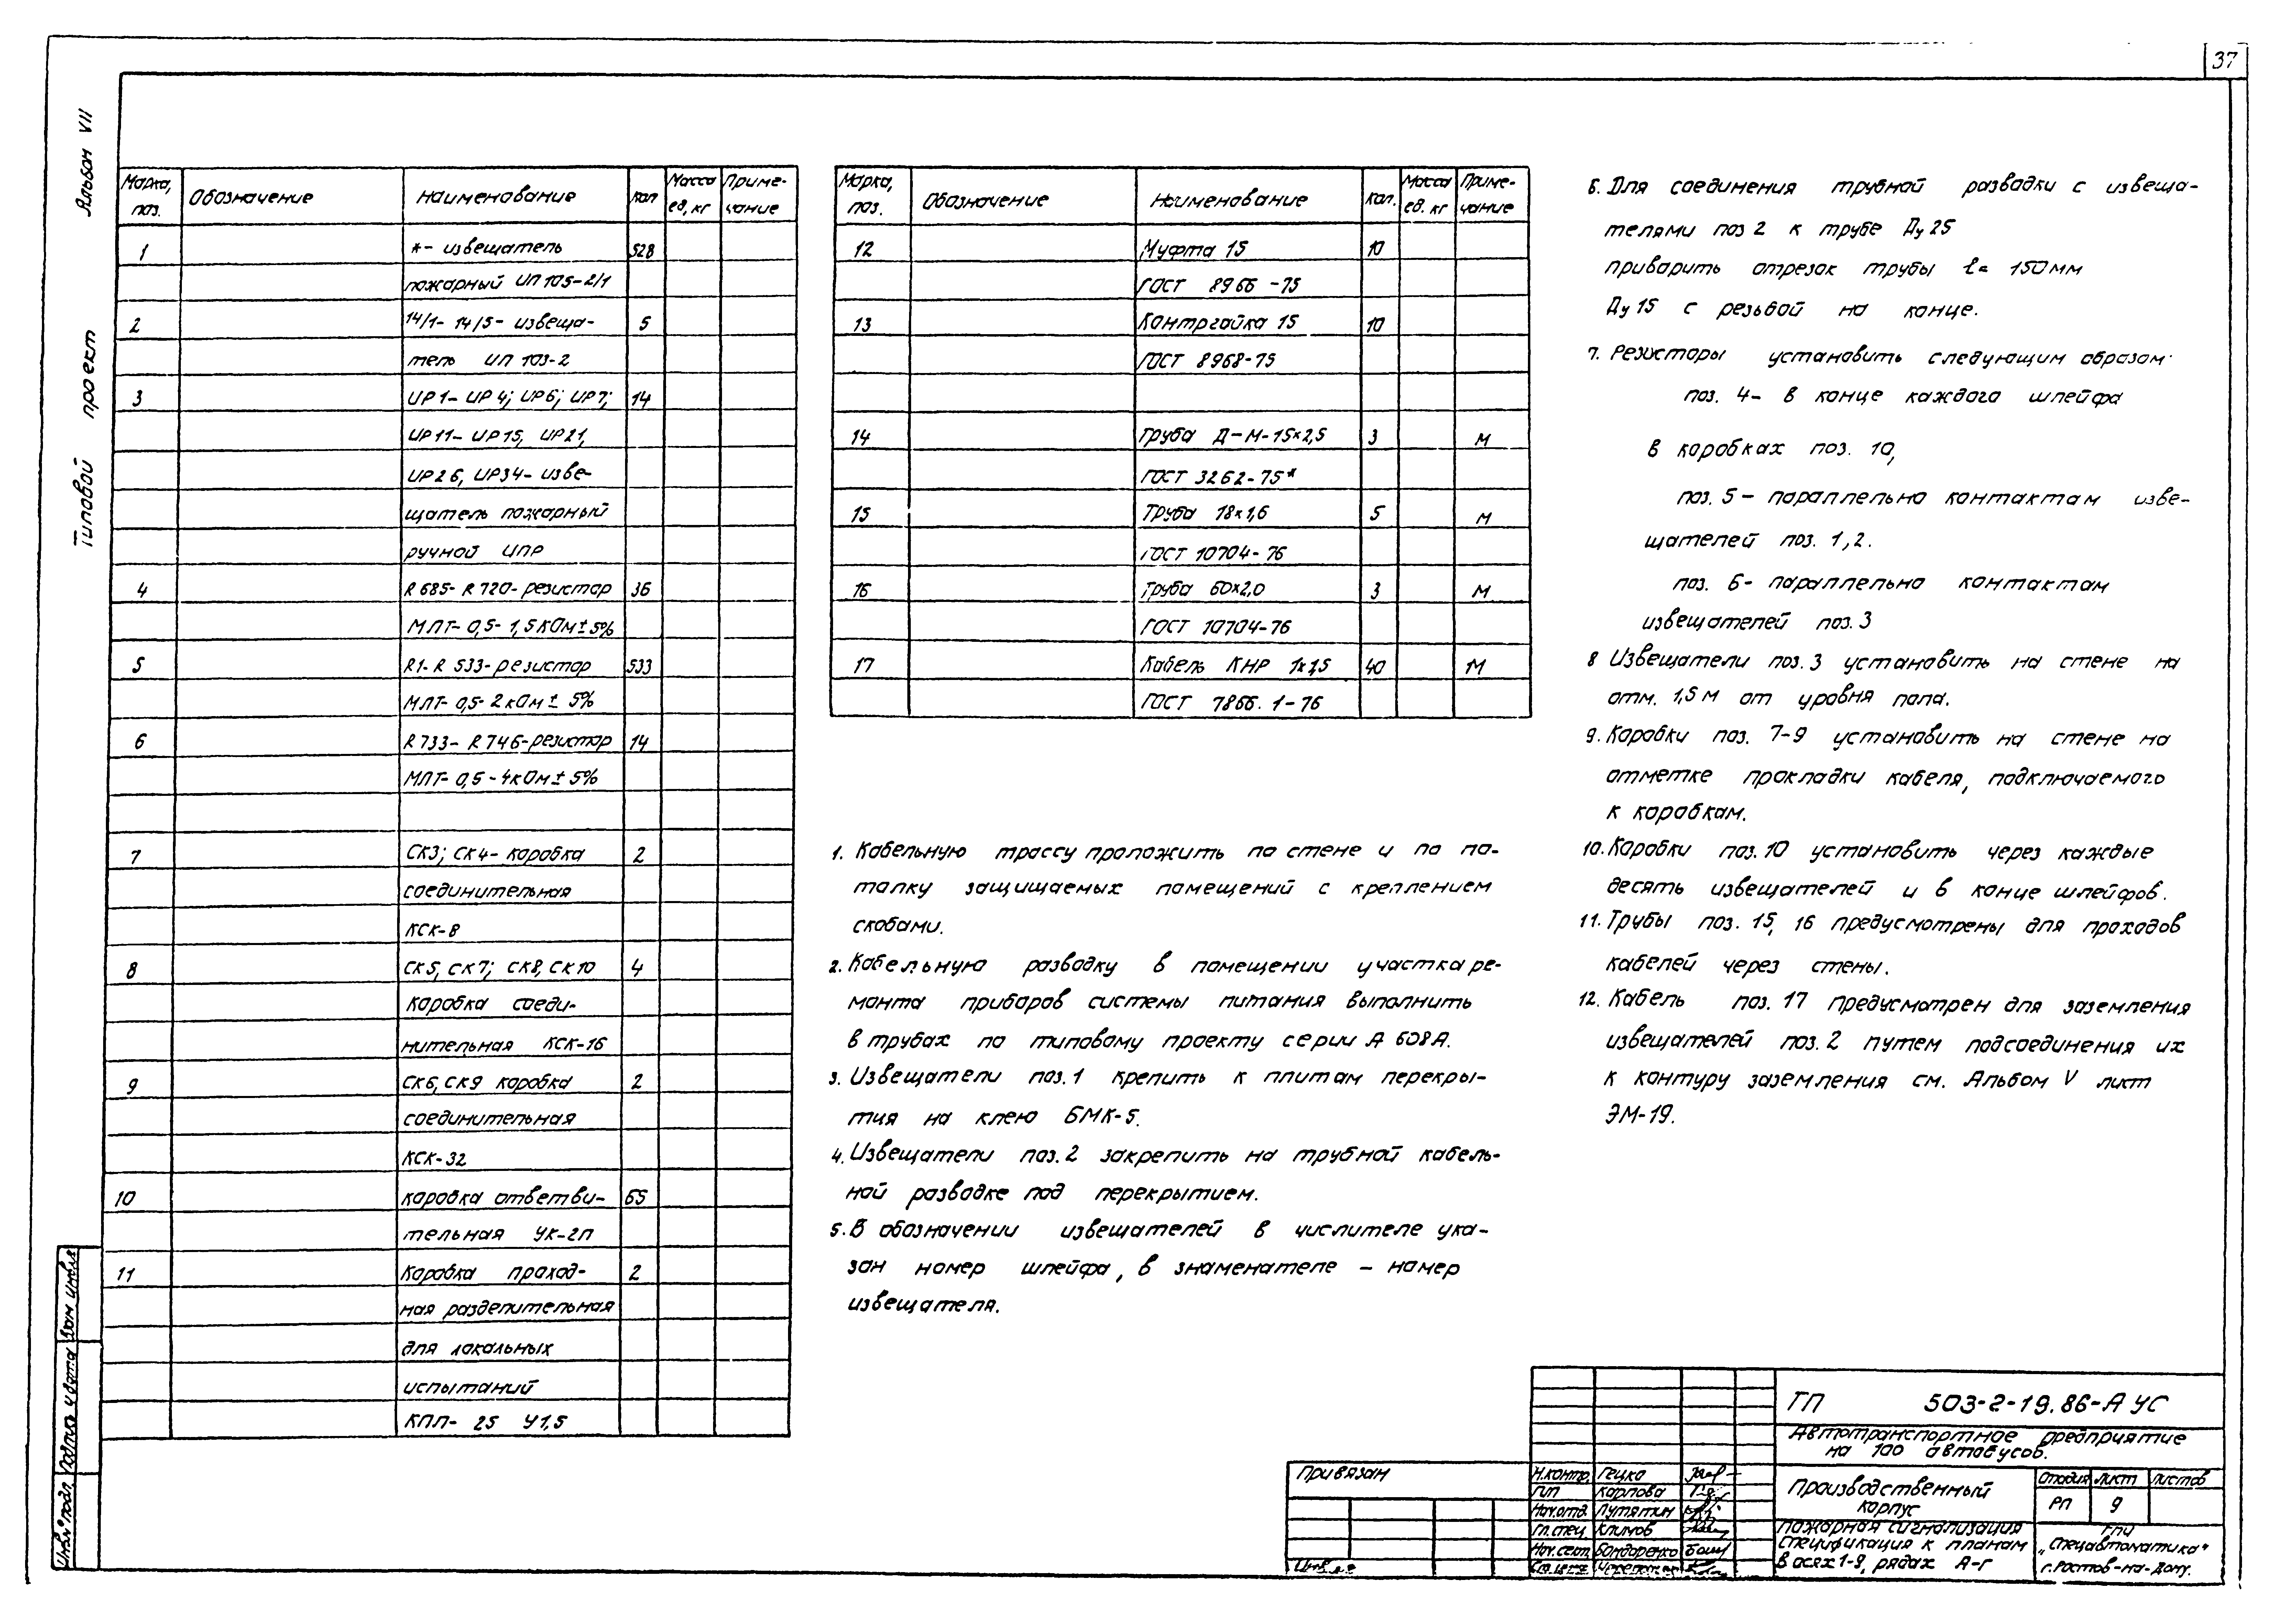 37
Альбом VII
Типовой проект
Марка, поз. Обозначение Наименование Кол Масса ед, кг Примечание
1 *- извещатель 528
пожарный ИП 105-2/1
2 14/1- 14/5- извеща- 5
тель ИП 103-2
3 ИР1- ИР4; ИР6; ИР7; 14
ИР11- ИР15, ИР21,
ИР26, ИР34- изве-
щатель пожарный
ручной ИПР
4 R685- R720- резистор 36
МЛТ- 0,5- 1,5 кОм ± 5%
5 R1- R 533- резистор 533
МЛТ- 0,5- 2 кОм ± 5%
6 R733- R746- резистор 14
МЛТ- 0,5 - 4 кОм ± 5%
7 СК3; СК4- коробка 2
соединительная
КСК-8
8 СК5, СК7; СК8, СК10 4
коробка соеди-
нительная КСК-16
9 СК6, СК9 коробка 2
соединительная
КСК-32
10 коробка ответви- 65
тельная УК-2П
11 Коробка проход- 2
ная разделительная
для локальных
испытаний
КПЛ- 25 У1,5
Марка, поз. Обозначение Наименование Кол. Масса ед. кг Примечание
12 Муфта 15 10
ГОСТ 8966 -75
13 Контргайка 15 10
ГОСТ 8968-75
14 Труба Д-М-15×2,5 3 М
ГОСТ 3262-75*
15 Труба 18×1,6 5 М
ГОСТ 10704-76
16 Труба 60×2,0 3 М
ГОСТ 10704-76
17 Кабель КНР 1×1,5 40 М
ГОСТ 7866. 1-76
1. Кабельную трассу проложить по стене и по по-
толку защищаемых помещений с креплением
скобами.
2. Кабельную разводку в помещении участка ре-
монта приборов системы питания выполнить
в трубах по типовому проекту серии А 608А.
3. Извещатели поз.1 крепить к плитам перекры-
тия на клею БМК-5.
4. Извещатели поз.2 закрепить на трубной кабель-
ной разводке под перекрытием.
5. В обозначении извещателей в числителе ука-
зан номер шлейфа, в знаменателе - номер
извещателя.
6. Для соединения трубной разводки с извеща-
телями поз 2 к трубе Ду 25
приварить отрезок трубы ℓ= 150мм
Ду 15 с резьбой на конце.
7. Резисторы установить следующим образом·
поз. 4- в конце каждого шлейфа
в коробках поз. 10,
поз. 5 - параллельно контактам изве-
щателей поз. 1, 2.
поз. 6- параллельно контактам
извещателей поз. 3
8 Извещатели поз. 3 установить на стене на
отм. 1,5 м от уровня пола.
9. Коробки поз. 7-9 установить на стене на
отметке прокладки кабеля, подключаемого
к коробкам.
10. Коробки поз. 10 установить через каждые
десять извещателей и в конце шлейфов.
11. Трубы поз. 15, 16 предусмотрены для проходов
кабелей через стены.
12. Кабель поз. 17 предусмотрен для заземления
извещателей поз. 2 путем подсоединения их
к контуру заземления см. Альбом V лист
ЭМ-19.
ТП 503-2-19.86-А УС
Автотранспортное предприятие
на 100 автобусов.
Привязан
Инв. №
Н.контр. Гецко
ГИП Карпова
Нач.отд. Путятин
Гл.спец Климов
Нач.сект. Бондаренко
Производственный
корпус
Стадия Лист Листов
РП 9
Пожарная сигнализация
Спецификация к планам
в осях 1-9, рядах А-Г
ГПИ
„Спецавтоматика"
г. Ростов-на-Дону.
Инв. № подл. Подпись и дата Взам инв. №